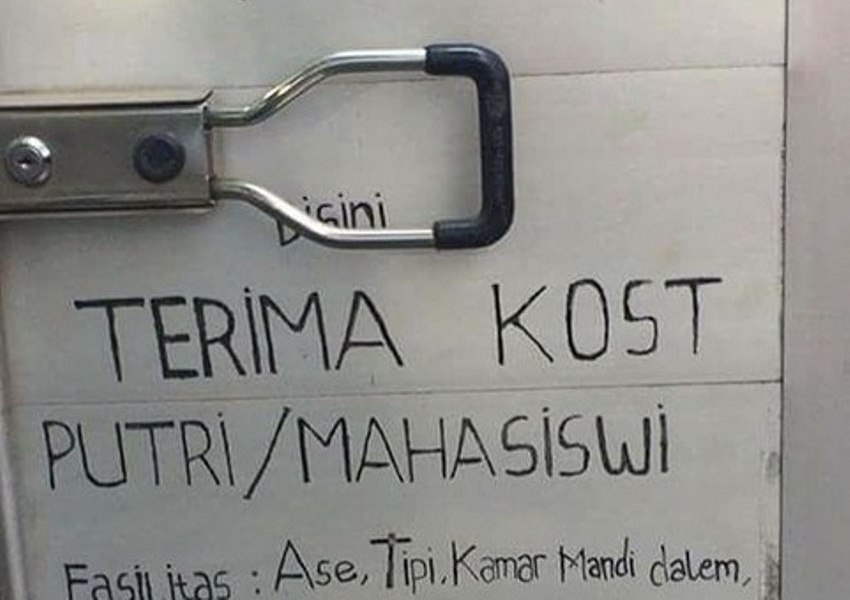 Disini
TERiMA KOST
PUTRi/MAHASiSWi
FasiLitas : Ase, Tipi, Kamar Mandi dalem,